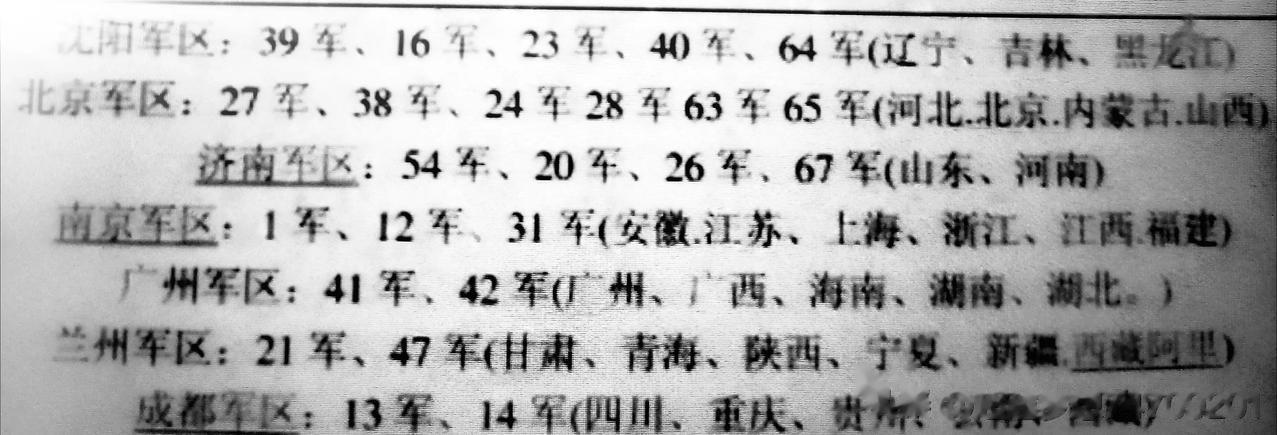 沈阳军区：39 军、16 军、23 军、40 军、64 军(辽宁、吉林、黑龙江)
北京军区：27 军、38 军、24 军 28 军 63 军 65 军(河北.北京.内蒙古.山西)
济南军区：54 军、20 军、26 军、67 军(山东、河南)
南京军区：1 军、12 军、31 军(安徽.江苏、上海、浙江、江西.福建)
广州军区：41 军、42 军(广州、广西、海南、湖南、湖北。)
兰州军区：21 军、47 军(甘肃、青海、陕西、宁夏、新疆.西藏阿里)
成都军区：13 军、14 军(四川、重庆、贵州、云南、西藏)